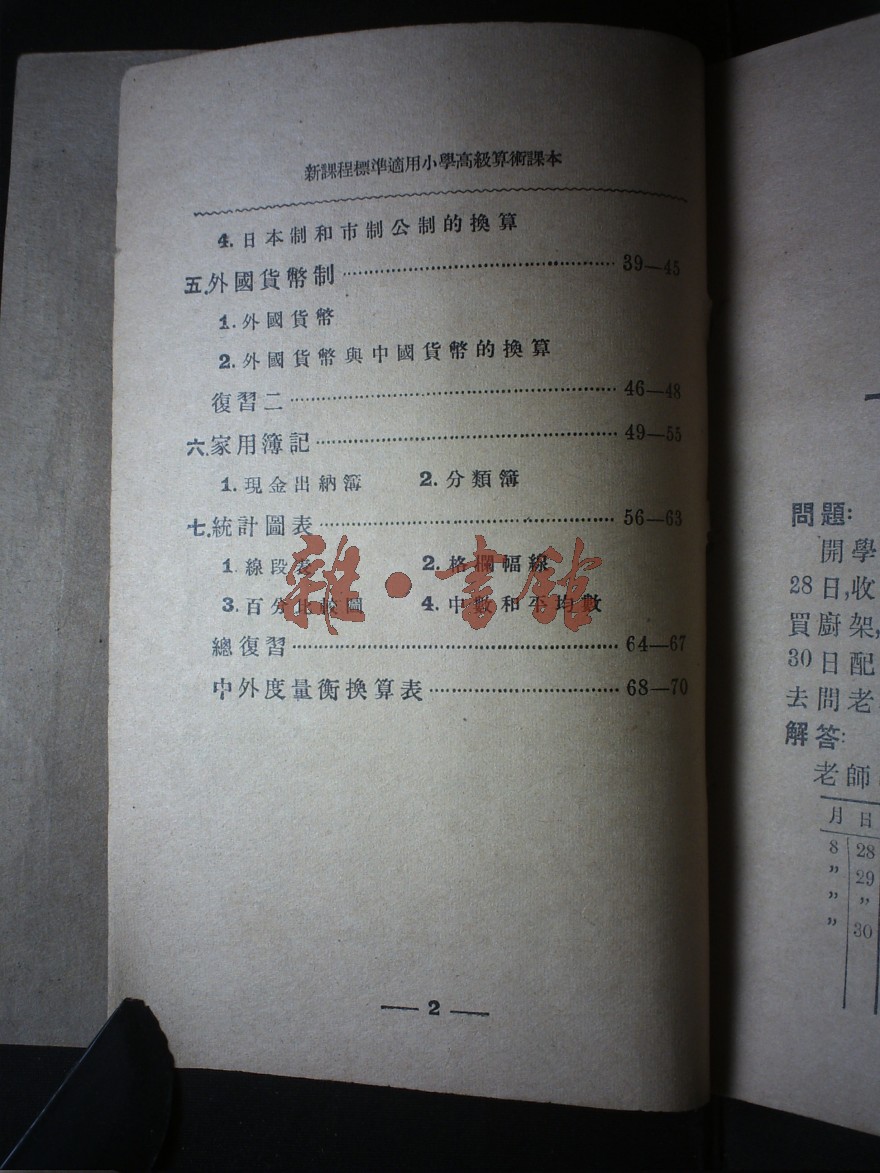 新課程標準適用小學高級算術課本
4. 日本制和市制公制的換算
五. 外國貨幣制 39—45
1. 外國貨幣
2. 外國貨幣與中國貨幣的換算
復習二 46—48
六. 家用簿記 49—55
1. 現金出納簿 2. 分類簿
七. 統計圖表 56—63
1. 線段表 2. 格欄幅線
3. 百分比較圖 4. 中數和平均數
總復習 64—67
中外度量衡換算表 68—70
— 2 —
雜·書館
問題:
開學
28日,收
買廚架,
30日配
去問老
解答:
老師
月 日
8 28
〃 29
〃 〃
〃 30